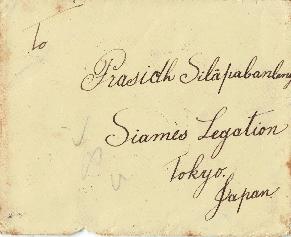 To
Prasidh Silapabanleng
Siames Legation
Tokyo.
Japan